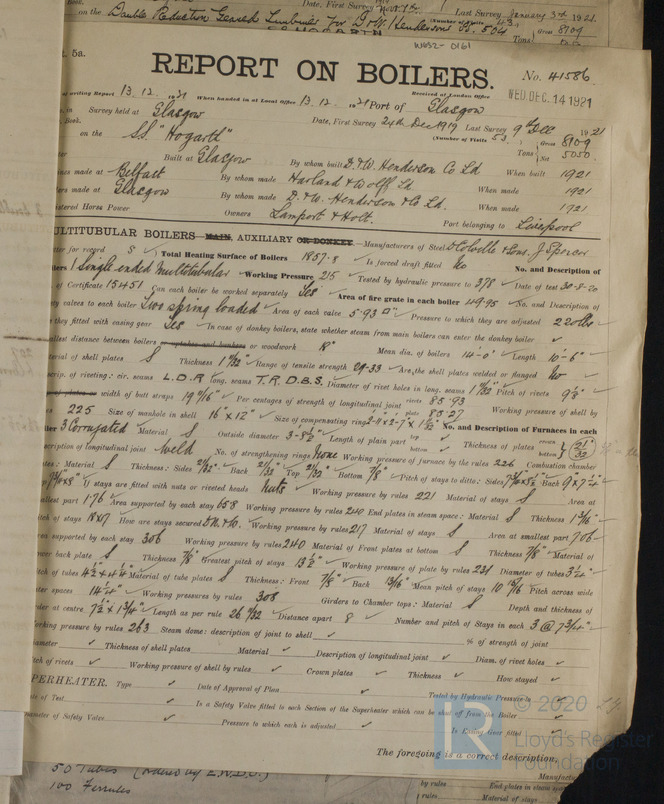 on the Double Reduction Geared Turbines for D. & W. Hendersons No. 504
Date, First Survey
Last Survey January 3rd 1921
Tons Gross 8109
W652-0161
t. 5a.
REPORT ON BOILERS.
No. 41586
of writing Report 13. 12. 1921 When handed in at Local Office 13. 12. 1921 Port of Glasgow
Received at London Office WED. DEC. 14 1921
in Survey held at Glasgow Date, First Survey 24th Dec 1919 Last Survey 9th Dec 1921
Book.
(Number of Visits 53.)
on the S.S. "Hogarth" Tons Gross 8109 Net 5050
Built at Glasgow By whom built D. & W. Henderson Co Ld When built 1921
nes made at Belfast By whom made Harland & Wolff Ld. When made 1921
ers made at Glasgow By whom made D. & W. Henderson & Co Ld. When made 1921
istered Horse Power Owners Lamport & Holt. Port belonging to Liverpool
ULTITUBULAR BOILERS MAIN, AUXILIARY OR DONKEY.—Manufacturers of Steel Stolville & Sons. J Spencer
tter for record S Total Heating Surface of Boilers 1857.8 Is forced draft fitted No No. and Description of
ilers 1 Single ended Multitubular Working Pressure 215 Tested by hydraulic pressure to 378 Date of test 30-8-20
of Certificate 15451 Can each boiler be worked separately Yes Area of fire grate in each boiler 49.95 No. and Description of
ty valves to each boiler Two spring loaded Area of each valve 5.93 □" Pressure to which they are adjusted 220 lbs
they fitted with easing gear Yes In case of donkey boilers, state whether steam from main boilers can enter the donkey boiler ✓
allest distance between boilers or uptakes and bunkers or woodwork 18" Mean dia. of boilers 14'-0" Length 10'-6"
terial of shell plates S Thickness 1 11/32" Range of tensile strength 29-33 Are the shell plates welded or flanged No
scrip. of riveting: cir. seams L.D.R long. seams T.R.D.B.S. Diameter of rivet holes in long. seams 1 11/32 Pitch of rivets 9 1/2"
of plates or width of butt straps 19 11/16" Per centages of strength of longitudinal joint rivets 85.93 plate 85.27 Working pressure of shell by
es 225 Size of manhole in shell 16" x 12" Size of compensating ring No. and Description of Furnaces in each
ler 3 Corrugated Material S Outside diameter 3-8 1/2" Length of plain part top bottom Thickness of plates crown bottom 21/32"
scription of longitudinal joint Weld No. of strengthening rings None Working pressure of furnace by the rules 226 Combustion chamber
tes: Material S Thickness: Sides 21/32" Back 21/32" Top 21/32" Bottom 7/8" Pitch of stays to ditto: Sides Back 9" x 7 3/4"
If stays are fitted with nuts or riveted heads Nuts Working pressure by rules 221 Material of stays S Area at
allest part 1.76 Area supported by each stay Working pressure by rules 240 End plates in steam space: Material S Thickness 1 3/16"
tch of stays 18x17 How are stays secured D.N.&W. Working pressure by rules 217 Material of stays S Area at smallest part 7.06
ea supported by each stay 306 Working pressure by rules 240 Material of Front plates at bottom S Thickness 7/8" Material of
wer back plate S Thickness 7/8" Greatest pitch of stays 13 1/2" Working pressure of plate by rules 231 Diameter of tubes 3 1/4"
ch of tubes 4 1/2 x 4 1/4" Material of tube plates S Thickness: Front 7/8" Back 13/16" Mean pitch of stays 10 15/16 Pitch across wide
ter spaces 14 1/4" Working pressures by rules 308 Girders to Chamber tops: Material S Depth and thickness of
rder at centre 7 1/2 x 1 3/4" Length as per rule 26 1/32 Distance apart 8 Number and pitch of Stays in each 3 @ 7 3/4"
rking pressure by rules 263 Steam dome: description of joint to shell ✓ % of strength of joint
iameter ✓ Thickness of shell plates ✓ Material ✓ Description of longitudinal joint ✓ Diam. of rivet holes ✓
itch of rivets ✓ Working pressure of shell by rules ✓ Crown plates ✓ Thickness ✓ How stayed ✓
PERHEATER. Type ✓ Date of Approval of Plan ✓ Tested by Hydraulic Pressure to ✓
te of Test ✓ Is a Safety Valve fitted to each Section of the Superheater which can be shut off from the Boiler ✓
iameter of Safety Valve ✓ Pressure to which each is adjusted ✓ Is Easing Gear fitted ✓
The foregoing is a correct description,
Manufac
50 Tubes
100 Ferrules
by rules End plates in steam space
rules Material of stays
LR © 2020
Lloyd's Register
Foundation